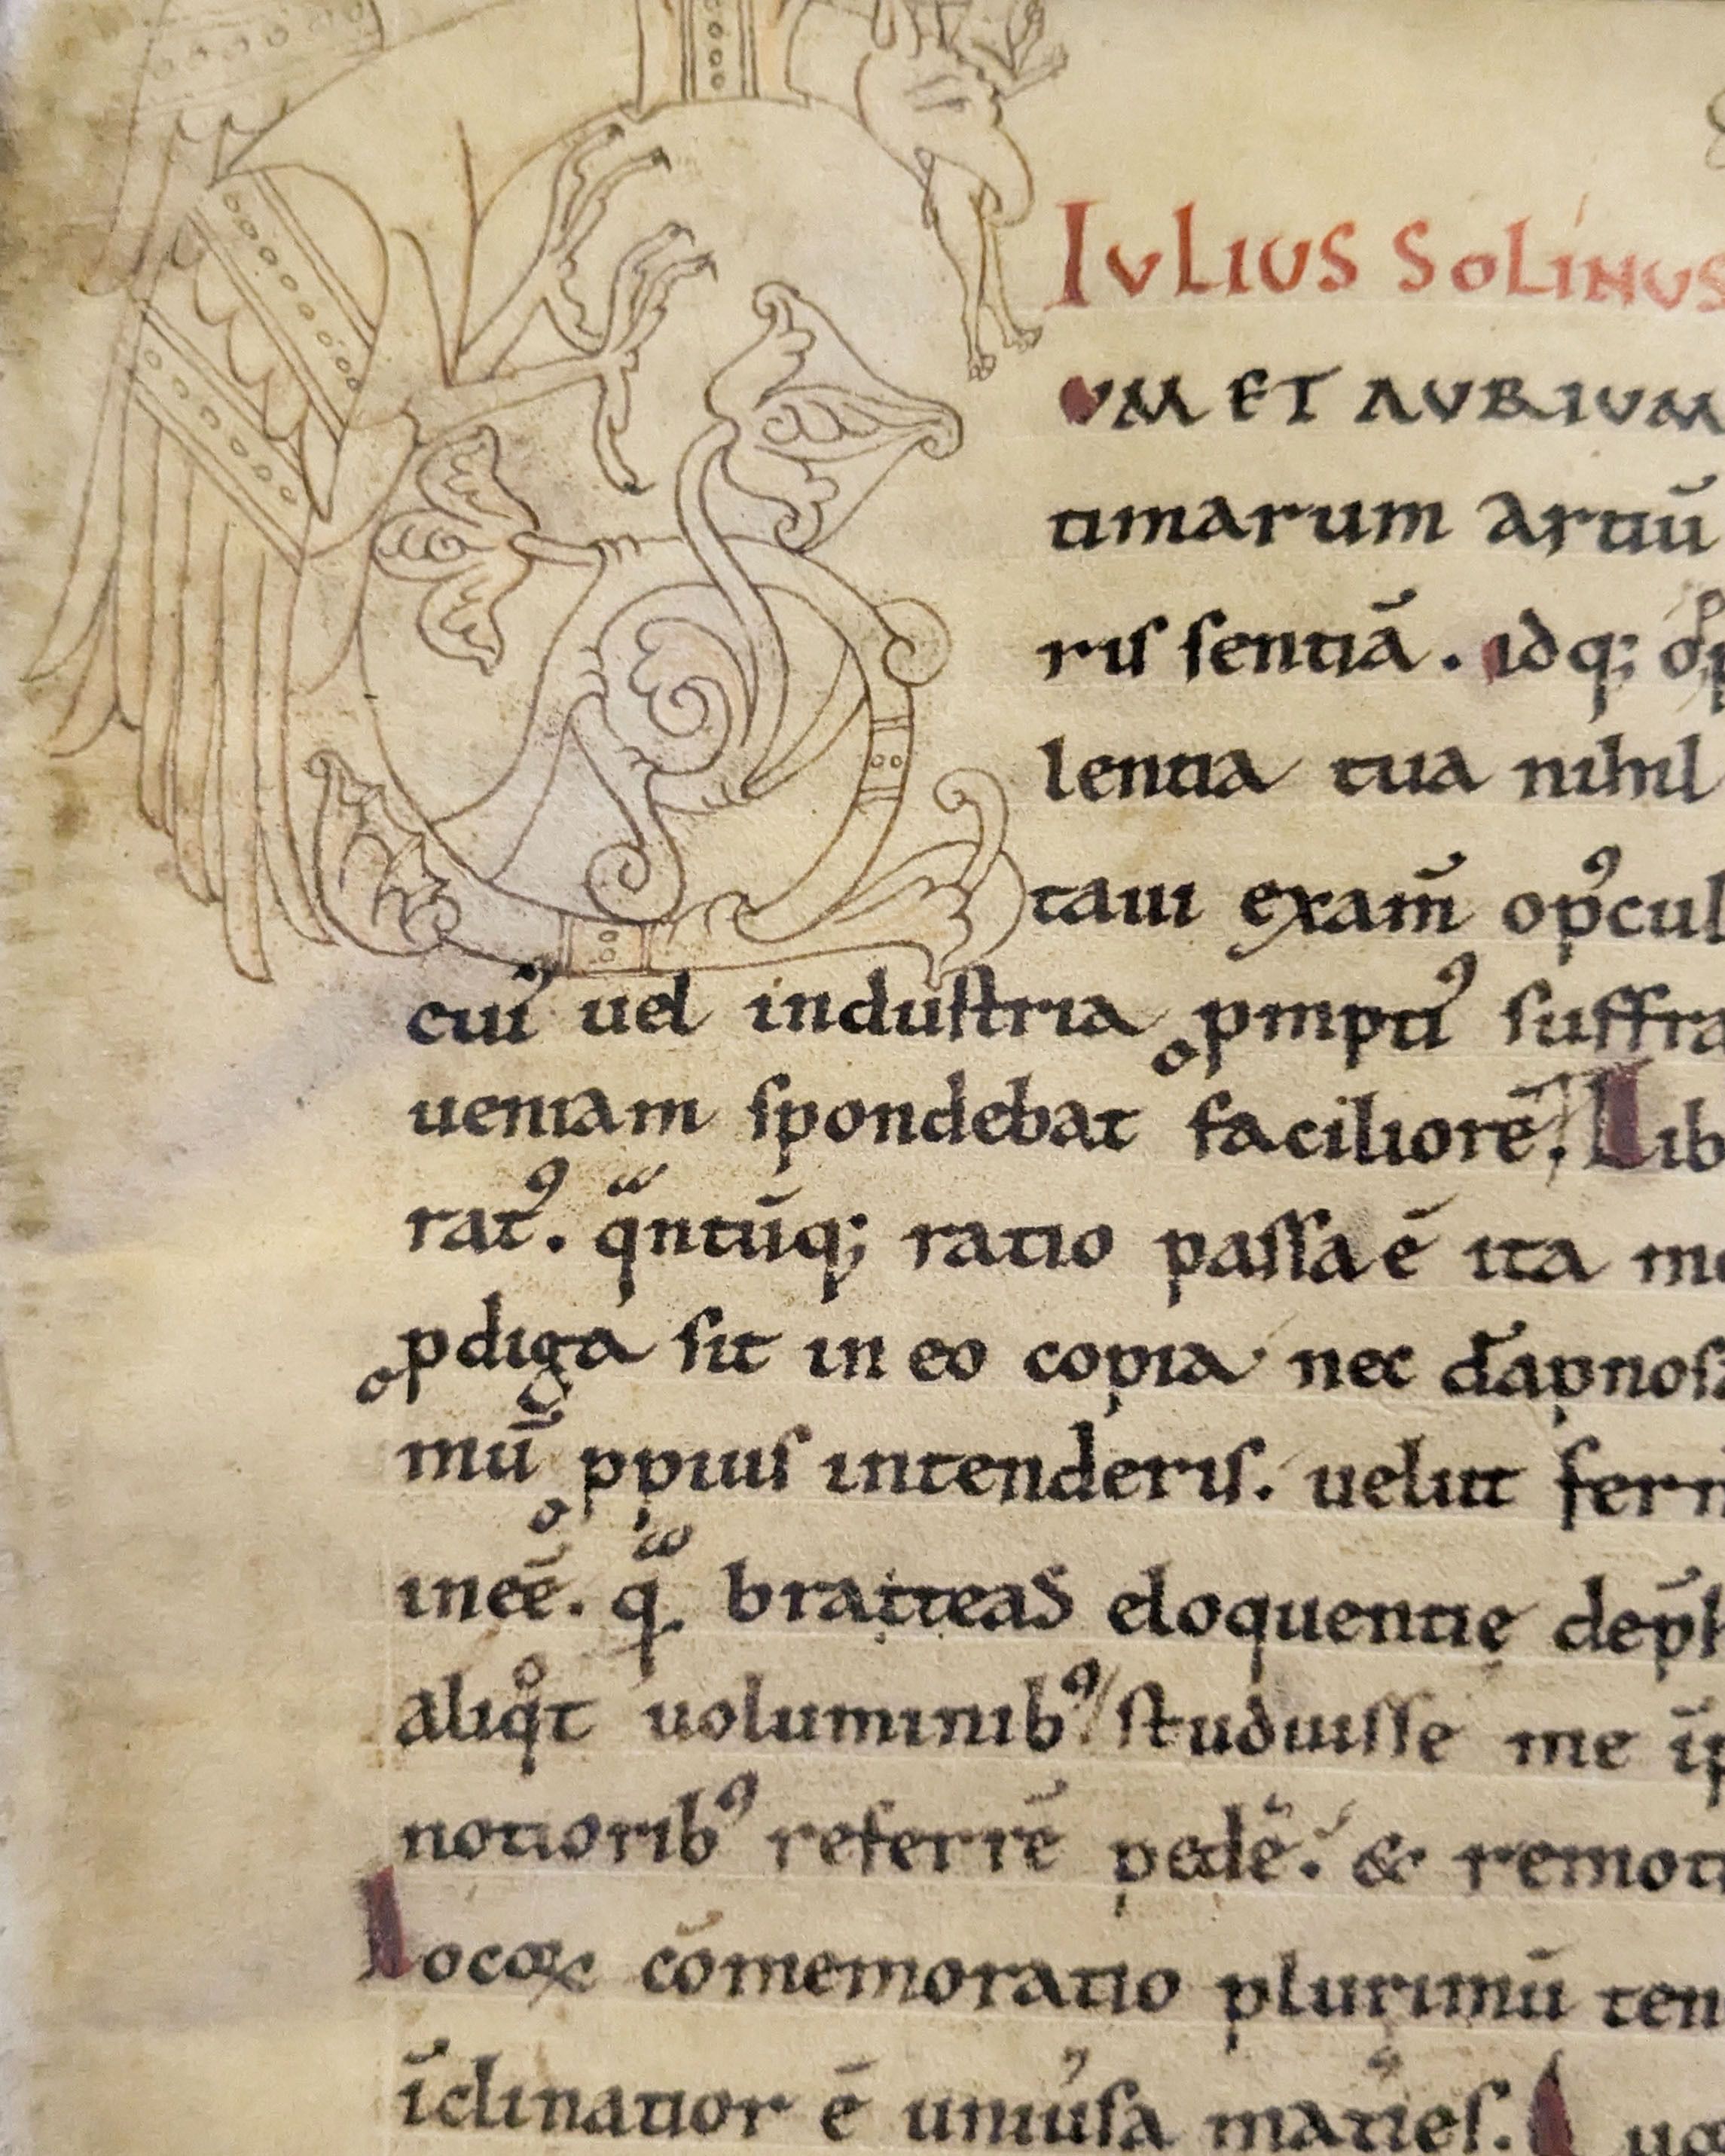 IULIUS SOLINUS
UM ET AURIUM
timarum artiū
ris sentiā. idq;
lentia tua nihil
taui exam̄ opꝰcul
cuiꝰ uel industria ꝓmptiꝰ suffra
ueniam spondebat faciliorē. Lib
ratꝰ. qᵃntūq; ratio passa ē ita me
ꝓdiga sit in eo copia nec dāpnosa
mū ꝓpius intenderis. uelut ferm
ineē. qᵃ bratteas eloquentię
aliqͦt uoluminibꝰ studuisse me īp
notioribꝰ referrē pedē. & remot
Locoꝝ cōmemoratio plurimū ten
īclinatior ē uniuͥsa maties.